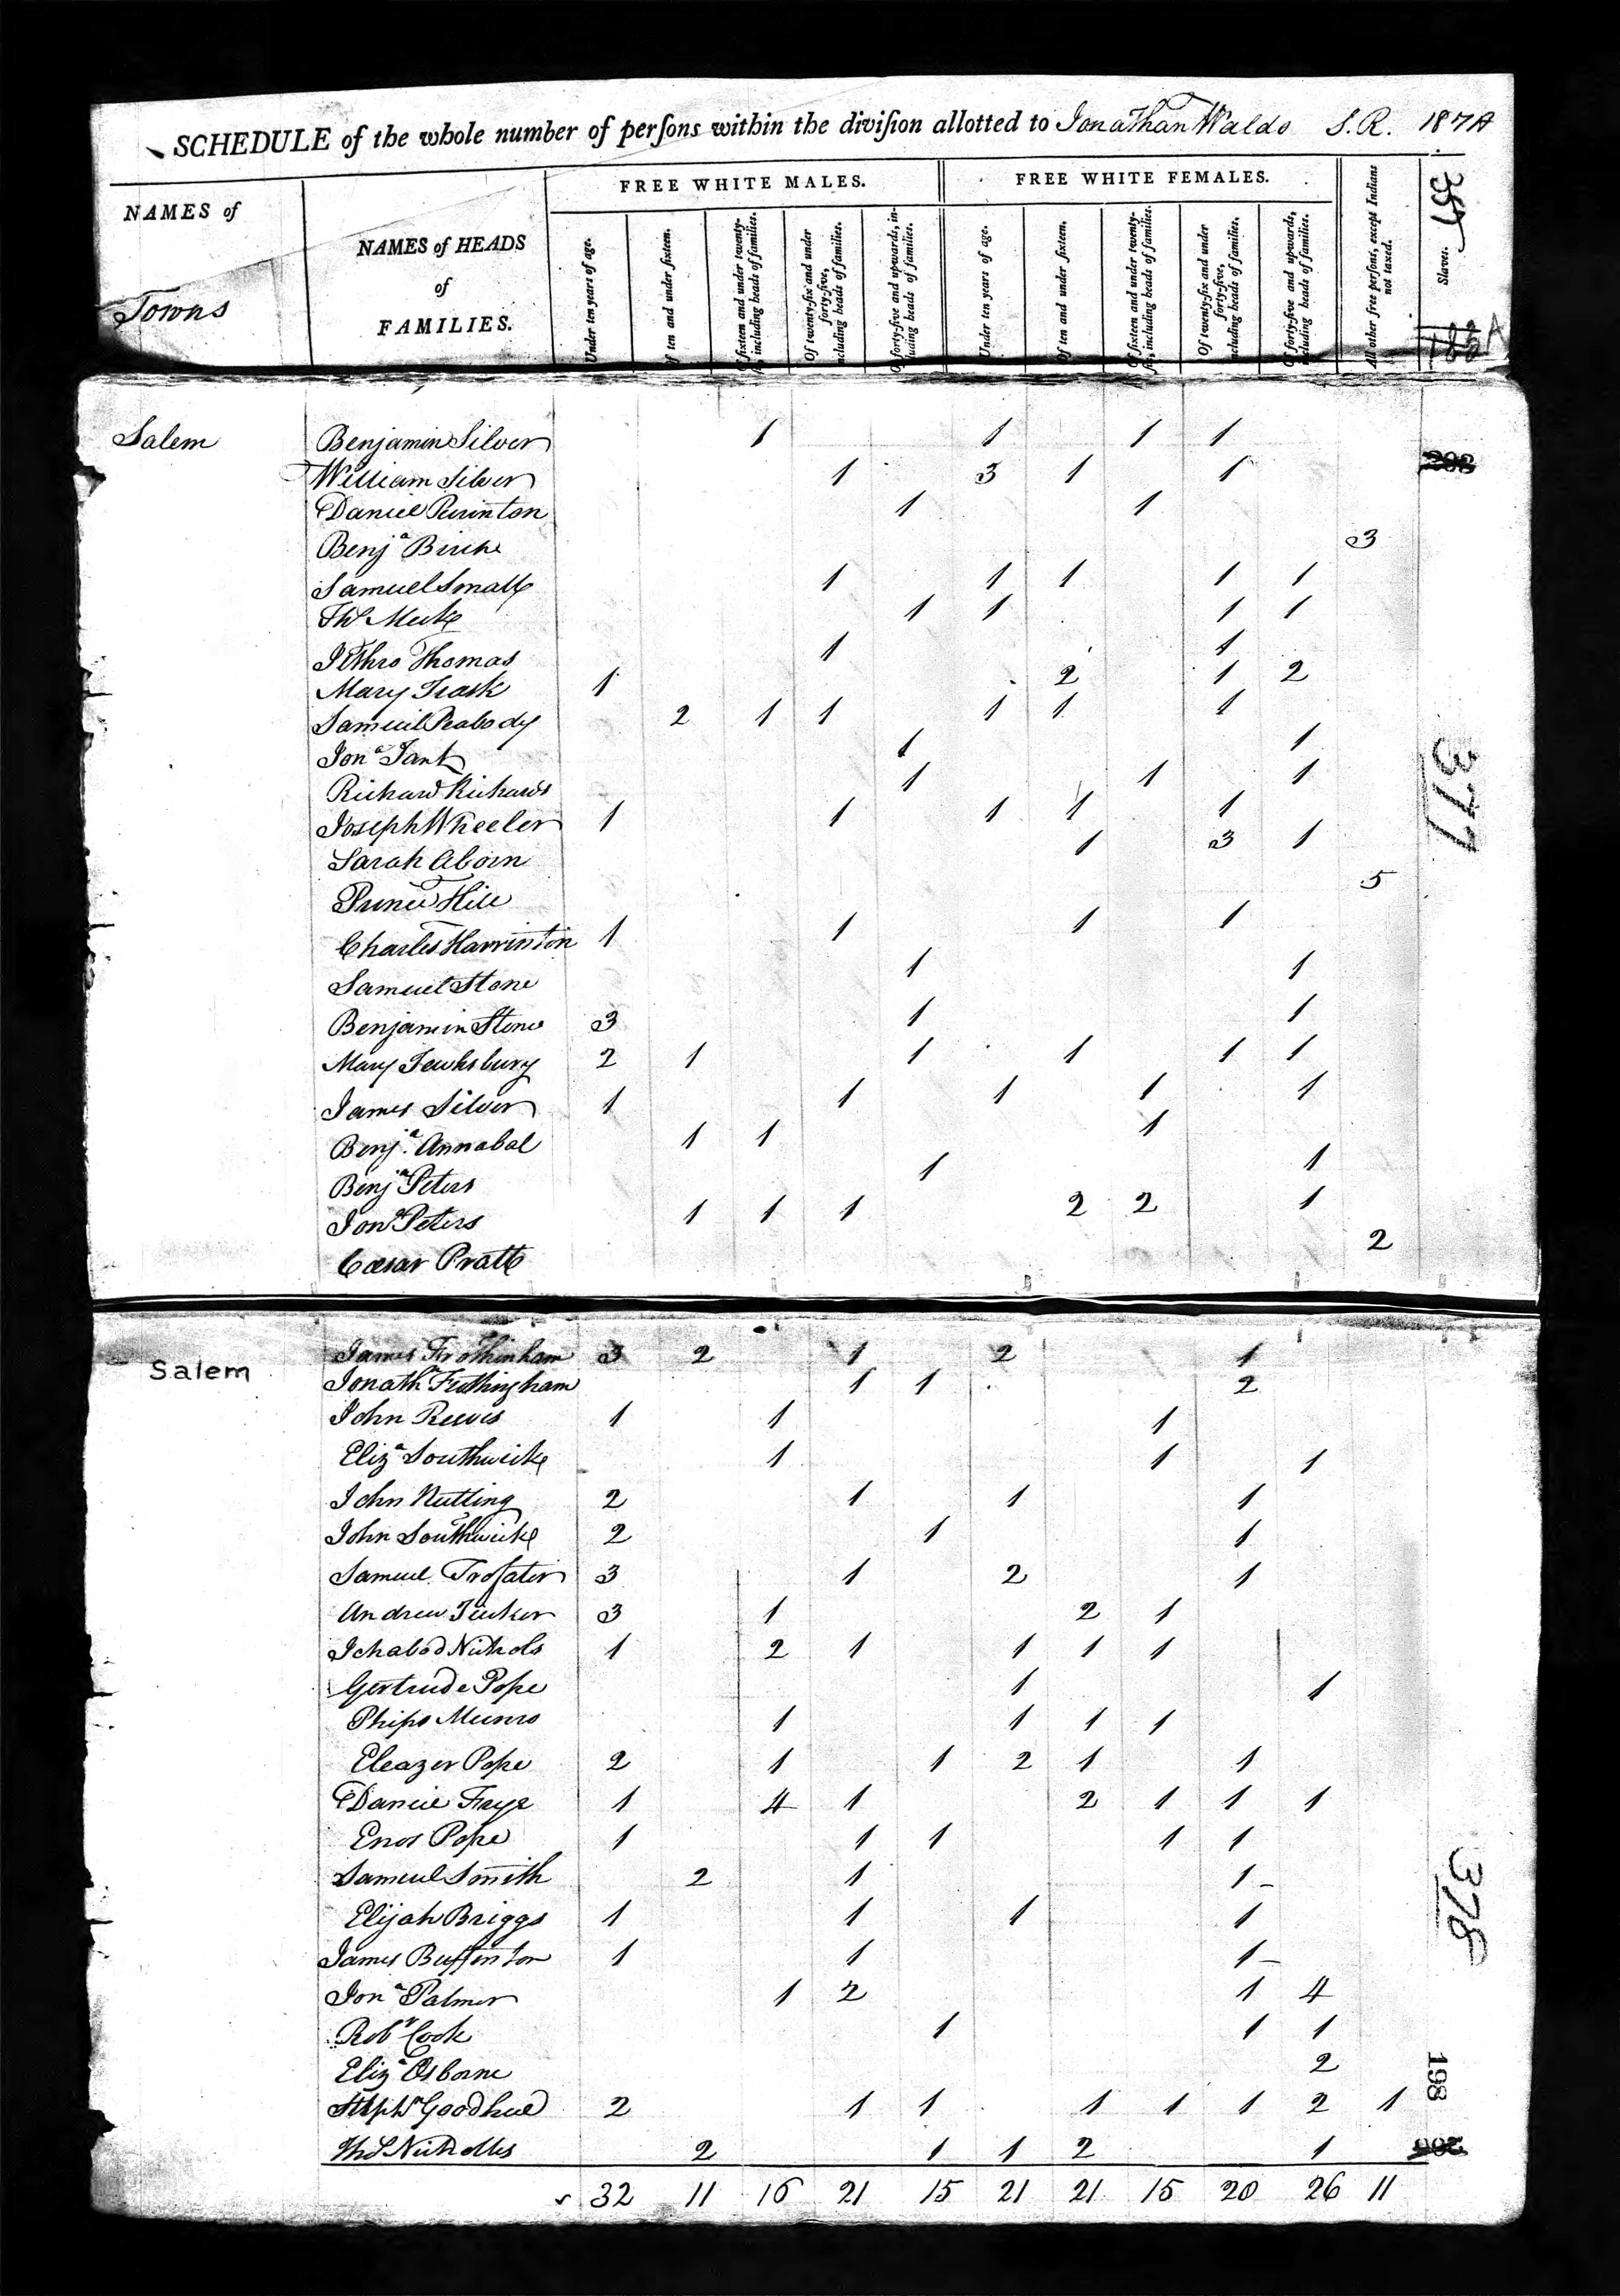 SCHEDULE of the whole number of perſons within the diviſion allotted to Jonathan Waldo S.R. 187A
FREE WHITE MALES. FREE WHITE FEMALES.
NAMES of Towns
NAMES of HEADS of FAMILIES.
Under ten years of age.
Of ten and under ſixteen.
Of ſixteen and under twenty-ſix, including heads of families.
Of twenty-ſix and under forty-five, including heads of families.
Of forty-five and upwards, including heads of families.
Under ten years of age.
Of ten and under ſixteen.
Of ſixteen and under twenty-ſix, including heads of families.
Of twenty-ſix and under forty-five, including heads of families.
Of forty-five and upwards, including heads of families.
All other free perſons, except Indians not taxed.
Slaves.
357
Salem Benjamin Silver 1 1 1 1
William Silver 1 3 1 1
Daniel Purinton 1 1
Benjª Birche 3
Samuel Small 1 1 1 1 1
Thˢ Meek 1 1 1 1
Jethro Thomas 1 1
Mary Trask 1 2 1 2
Samuel Peabody 2 1 1 1 1 1
Jonª Tant 1 1
Richard Richards 1 1 1
Joseph Wheeler 1 1 1 1 1
Sarah Aborn 1 3 1
Prince Hill 5
Charles Harrinton 1 1 1 1
Samuel Stone 1 1
Benjamin Stone 3 1 1
Mary Tewksbury 2 1 1 1 1 1
James Silver 1 1 1 1 1
Benjª Annabal 1 1 1
Benjª Peters 1 1
Jonª Peters 1 1 1 2 2 1
Cæsar Pratt 2
377
Salem James Frothinham 3 2 1 2 1
Jonathⁿ Frothingham 1 1 2
John Reeves 1 1 1
Elizª Southwick 1 1 1
John Nutting 2 1 1 1
John Southwick 2 1 1
Samuel Trofater 3 1 2 1
Andrew Tucker 3 1 2 1
Ichabod Nichols 1 2 1 1 1 1
Gertrude Pope 1 1
Phips Munro 1 1 1 1
Eleazer Pope 2 1 1 2 1 1
Daniel Frye 1 4 1 2 1 1 1
Enos Pope 1 1 1 1 1
Samuel Smith 2 1 1
Elijah Briggs 1 1 1 1
James Buffinton 1 1 1
Jonª Palmer 1 2 1 4
Robᵗ Cook 1 1 1
Elizª Osborne 2
Stephⁿ Goodhue 2 1 1 1 1 1 2 1
Thˢ Nicholls 2 1 1 2 1
32 11 16 21 15 21 21 15 20 26 11
378
198